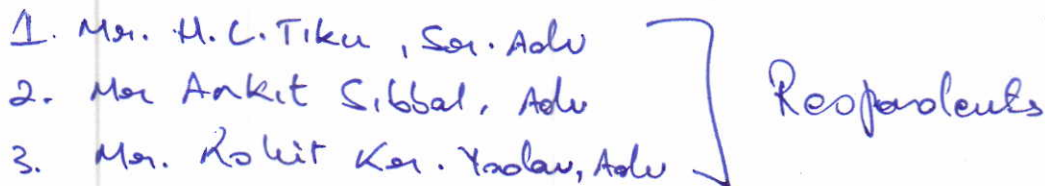 1. Mr. H.C. Tiku, Sr. Adv
2. Mr Ankit Sibbal, Adv
3. Mr. Rohit Kr. Yadav, Adv
Respondents